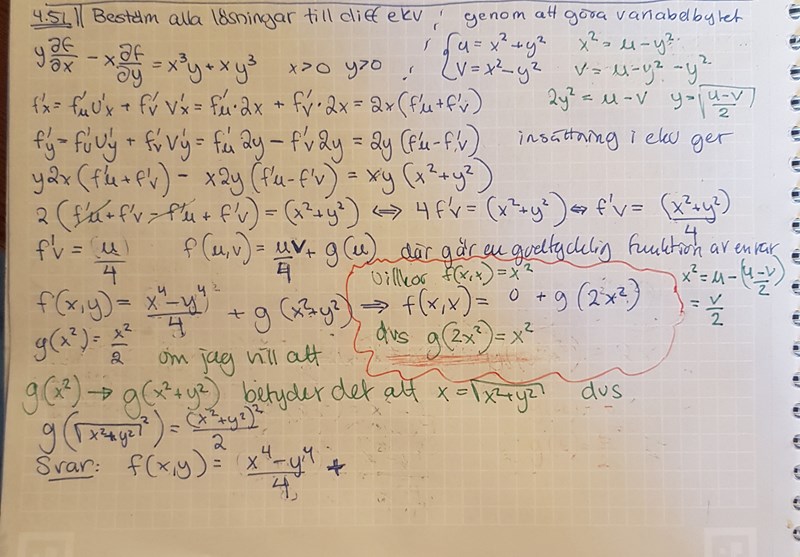 4.52 || Bestäm alla lösningar till diff ekv ; genom att göra variabelbytet
y ∂f/∂x - x ∂f/∂y = x³y + xy³ x>0 y>0 , { u = x² + y² x² = u - y²
v = x² - y² v = u - y² - y²
f'x = f'u u'x + f'v v'x = f'u · 2x + f'v · 2x = 2x (f'u + f'v) 2y² = u - v y = √((u-v)/2)
f'y = f'u u'y + f'v v'y = f'u 2y - f'v 2y = 2y (f'u - f'v) insättning i ekv ger
y2x (f'u + f'v) - x2y (f'u - f'v) = xy (x² + y²)
2 (f'u + f'v - f'u + f'v) = (x² + y²) ⇔ 4f'v = (x² + y²) ⇔ f'v = (x² + y²)/4
f'v = u/4 f(u,v) = uv/4 + g(u) där g är en godtycklig funktion av en var
villkor f(x,x) = x² x² = u - (u-v)/2
f(x,y) = (x⁴ - y⁴)/4 + g(x² + y²) ⇒ f(x,x) = 0 + g(2x²) = v/2
g(x²) = x²/2 om jag vill att dvs g(2x²) = x²
g(x²) → g(x² + y²) betyder det att x = √(x² + y²) dvs
g(√(x² + y²)²) = (x² + y²)²/2
Svar: f(x,y) = (x⁴ - y⁴)/4 +